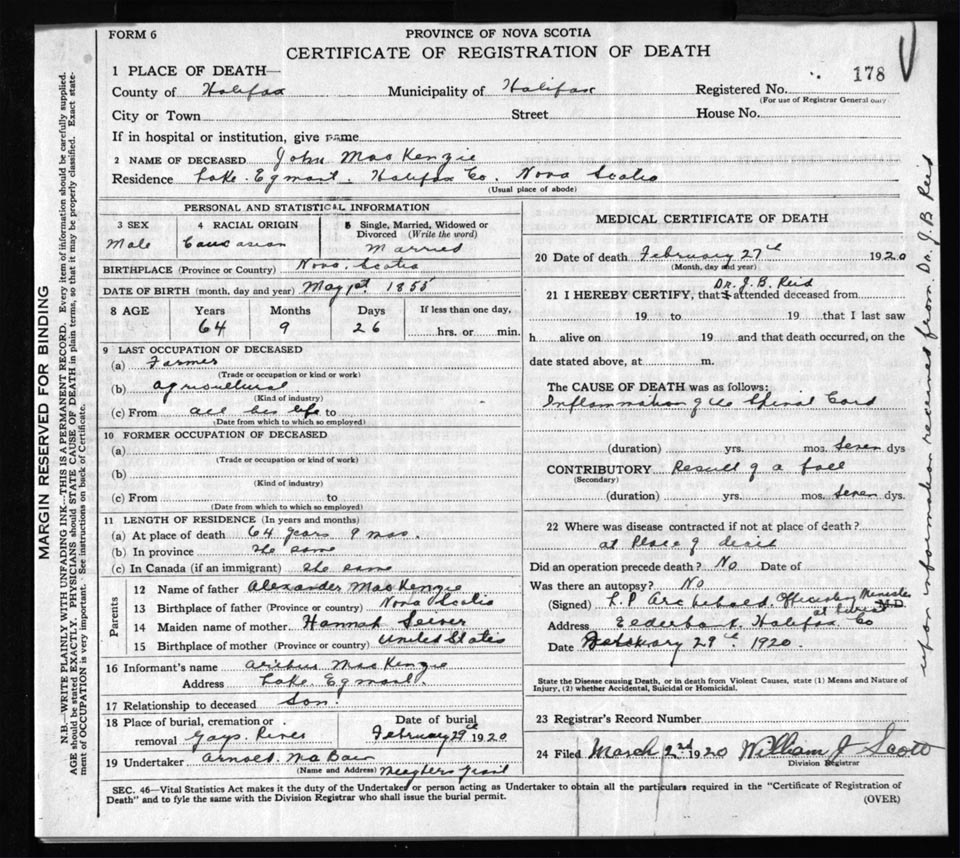 FORM 6
PROVINCE OF NOVA SCOTIA
CERTIFICATE OF REGISTRATION OF DEATH
178
1 PLACE OF DEATH—
County of Halifax Municipality of Halifax Registered No.
(For use of Registrar General only
City or Town Street House No.
If in hospital or institution, give name
2 NAME OF DECEASED John MacKenzie
Residence Lake Egmont. Halifax Co. Nova Scotia
(Usual place of abode)
PERSONAL AND STATISTICAL INFORMATION
3 SEX 4 RACIAL ORIGIN 5 Single, Married, Widowed or Divorced (Write the word)
Male Caucasian Married
BIRTHPLACE (Province or Country) Nova Scotia
DATE OF BIRTH (month, day and year) May 1st 1855
8 AGE Years Months Days If less than one day,
64 9 26 hrs. or min.
9 LAST OCCUPATION OF DECEASED
(a) Farmer
(Trade or occupation or kind or work)
(b) Agricultural
(Kind of industry)
(c) From all his life to
(Date from which to which so employed)
10 FORMER OCCUPATION OF DECEASED
(a)
(Trade or occupation or kind of work)
(b)
(Kind of industry)
(c) From to
(Date from which to which so employed)
11 LENGTH OF RESIDENCE (In years and months)
(a) At place of death 64 years 9 mos.
(b) In province the same
(c) In Canada (if an immigrant) the same
Parents
12 Name of father Alexander MacKenzie
13 Birthplace of father (Province or country) Nova Scotia
14 Maiden name of mother Hannah
15 Birthplace of mother (Province or country) United States
16 Informant's name MacKenzie
Address Lake Egmont.
17 Relationship to deceased Son.
18 Place of burial, cremation or removal Gays River
Date of burial February 29th 1920
19 Undertaker
(Name and Address) Meaghers Grant
MEDICAL CERTIFICATE OF DEATH
20 Date of death February 27th 1920
(Month, day and year)
Dr. J. B. Reid
21 I HEREBY CERTIFY, that I attended deceased from
19 to 19 that I last saw
h alive on 19 and that death occurred, on the
date stated above, at m.
The CAUSE OF DEATH was as follows:
Inflammation of the Spinal Cord
(duration) yrs. mos. Seven dys
CONTRIBUTORY Result of a fall
(Secondary)
(duration) yrs. mos. Seven dys.
22 Where was disease contracted if not at place of death?
at Place of
Did an operation precede death? No Date of
Was there an autopsy? No
(Signed) L. P. Archibald. Officiating Minister at M.D.
Address Elderbank Halifax Co
Date February 29th 1920.
State the Disease causing Death, or in death from Violent Causes, state (1) Means and Nature of
Injury, (2) whether Accidental, Suicidal or Homicidal.
23 Registrar's Record Number
24 Filed March 2nd 1920 William J Scott
Division Registrar
SEC. 46—Vital Statistics Act makes it the duty of the Undertaker or person acting as Undertaker to obtain all the particulars required in the "Certificate of Registration of
Death" and to fyle the same with the Division Registrar who shall issue the burial permit.
(OVER)
MARGIN RESERVED FOR BINDING
N.B.—WRITE PLAINLY WITH UNFADING INK—THIS IS A PERMANENT RECORD. Every item of information should be carefully supplied.
AGE should be stated EXACTLY. PHYSICIANS should STATE CAUSE OF DEATH in plain terms, so that it may be properly classified. Exact state-
ment of OCCUPATION is very important. See instructions on back of Certificate.
upon information received from Dr. J. B Reid